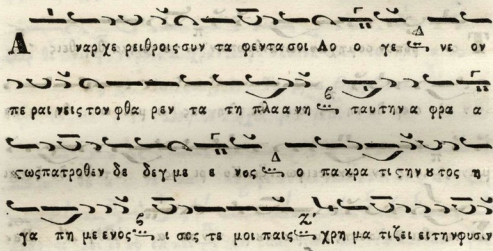 Α ναρχε ρειθροις συν τα φεντα σοι Λο ο γε Δ νε ον
πε ραι νεις τον φθα ρεν τα τη πλα α νη β ταυ την α φρα α
τως πατροθεν δε δεγ με ε νος Δ ο πα κρα τι την ȣ τος η
γα πη με ενος ϛ ι σος τε μοι παις Ζ χρη μα τιζει ει την φυσιν